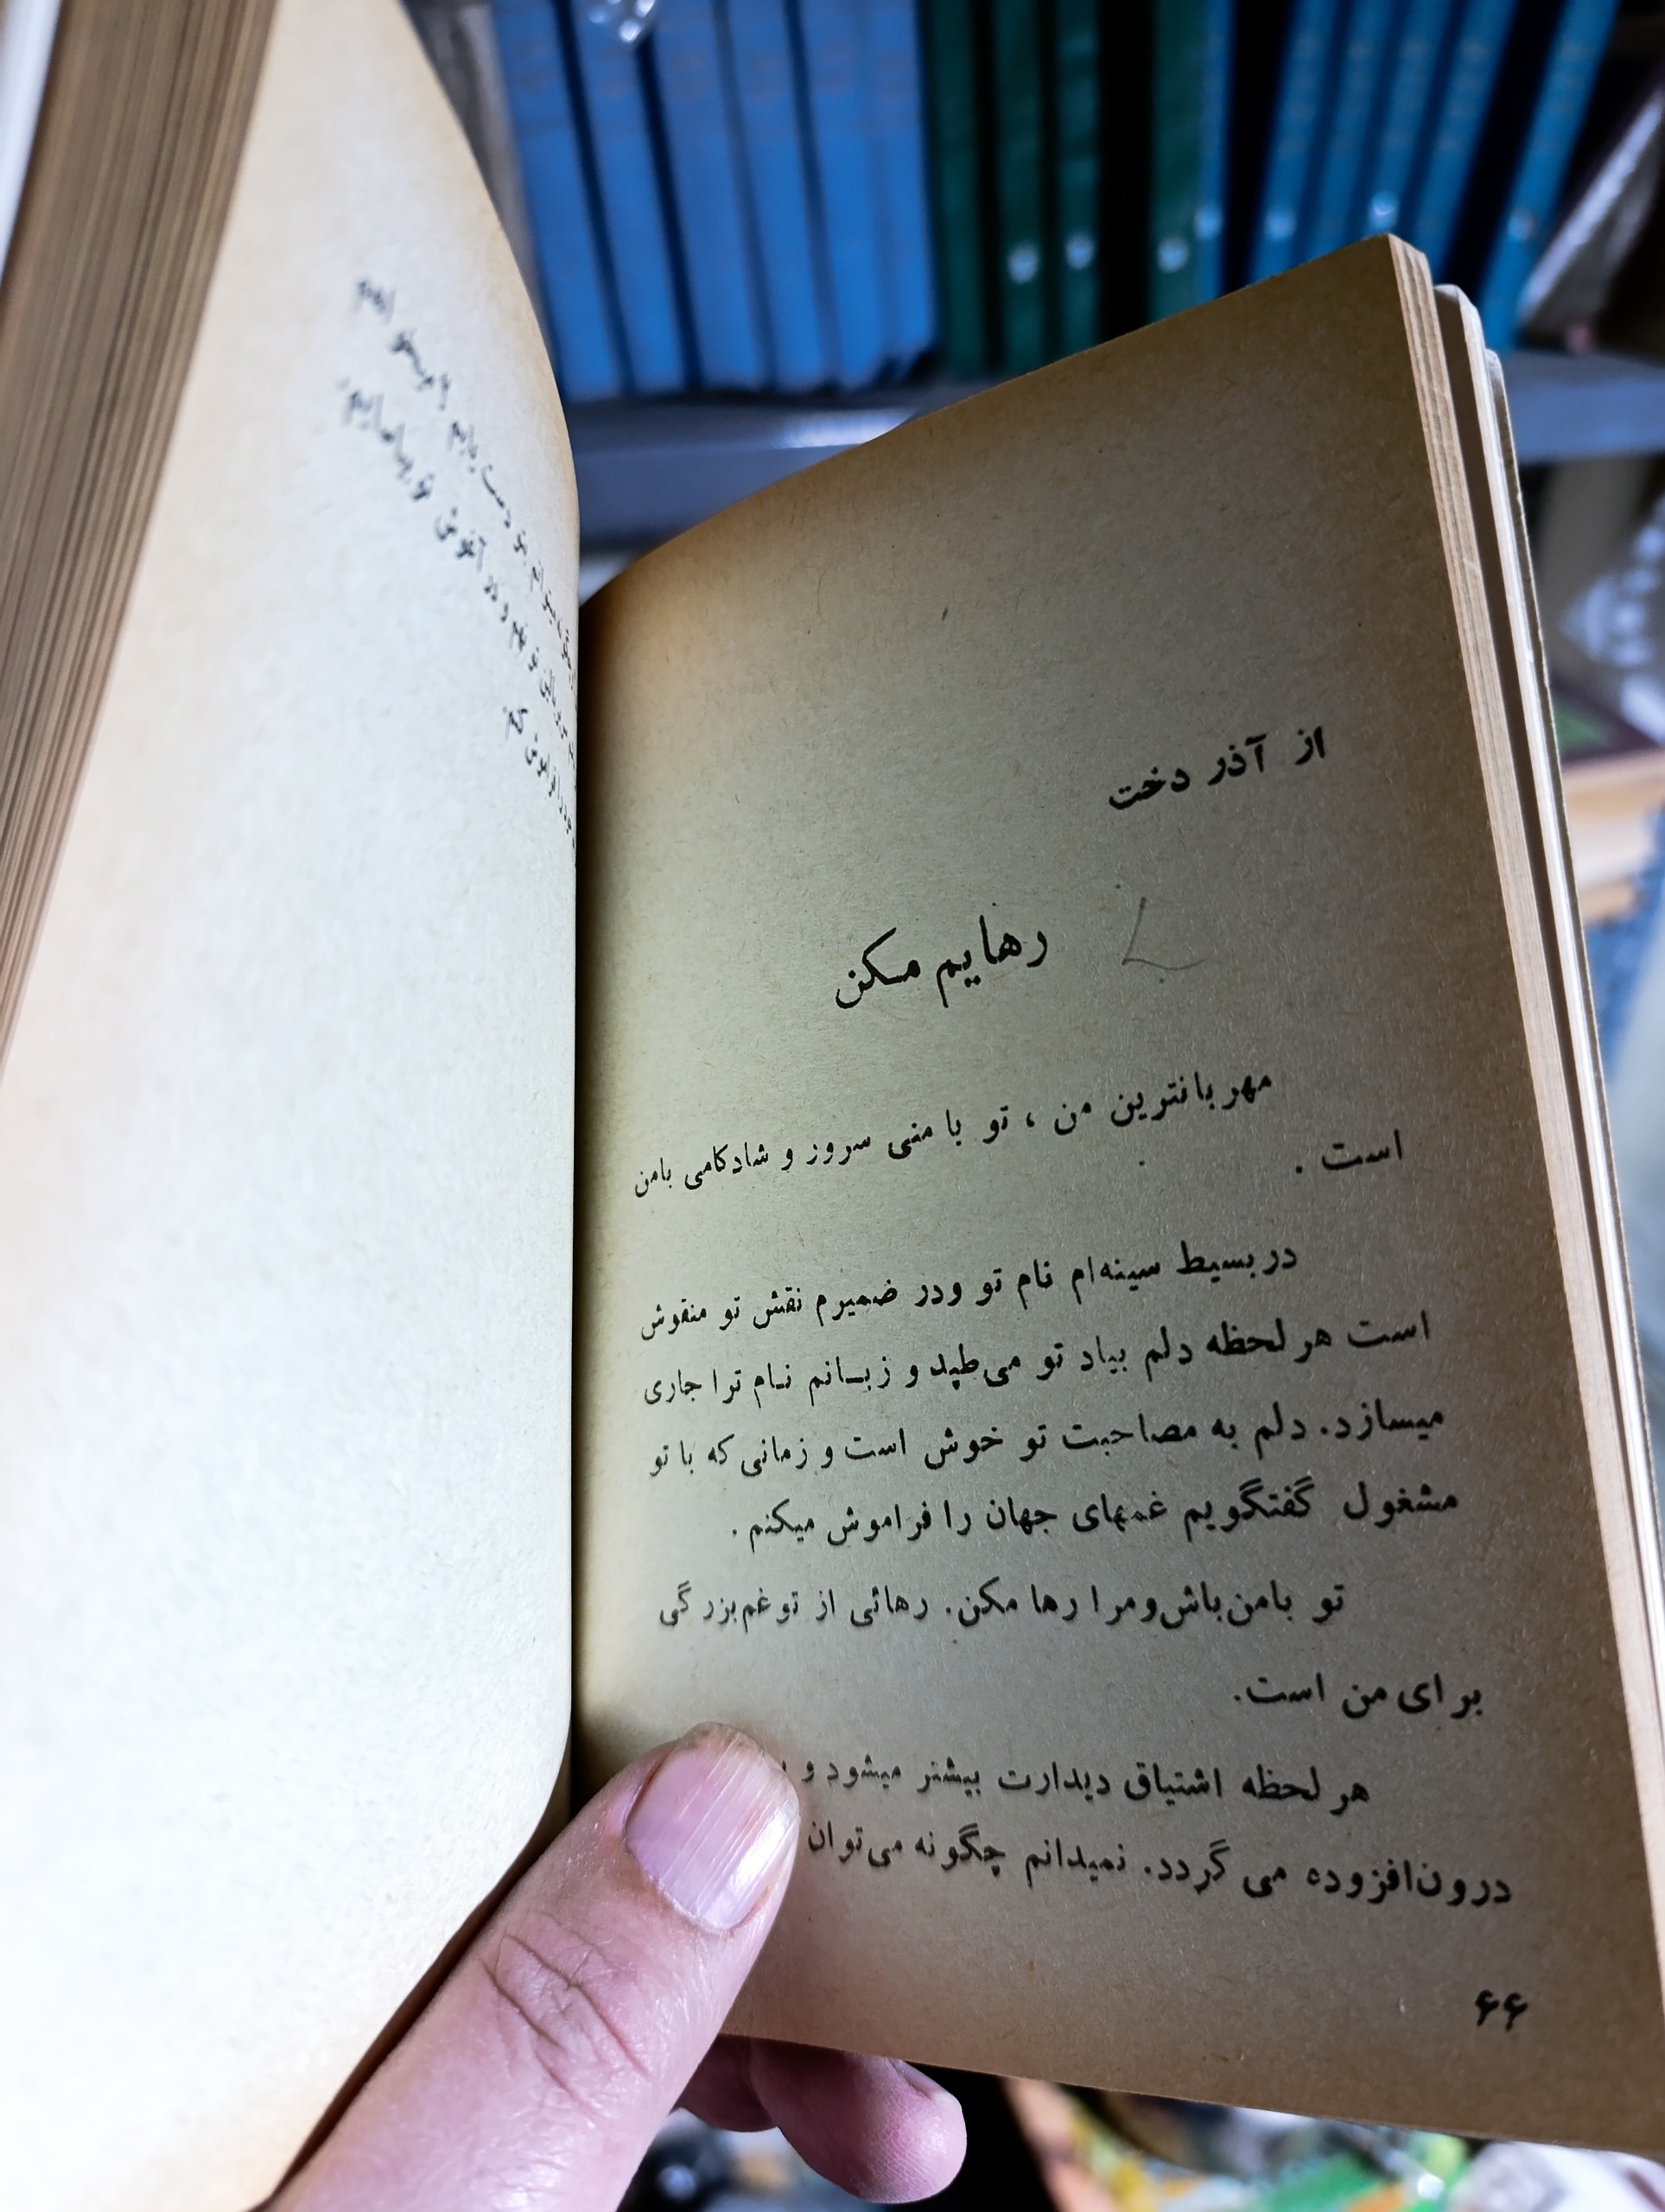 از آذر دخت
رهایم مکن
مهربانترین من ، تو با منی سروز و شادکامی بامن
است .
در بسیط سینه‌ام نام تو ودر ضمیرم نقش تو منقوش
است هر لحظه دلم بیاد تو می‌طپد و زبانم نام ترا جاری
میسازد. دلم به مصاحبت تو خوش است و زمانی که با تو
مشغول گفتگویم غمهای جهان را فراموش میکنم .
تو بامن‌باش‌ومرا رها مکن. رهائی از تو غم‌بزرگی
برای من است.
هر لحظه اشتیاق دیدارت بیشتر میشود و
درون‌افزوده می گردد. نمیدانم چگونه می‌توان
۶۶